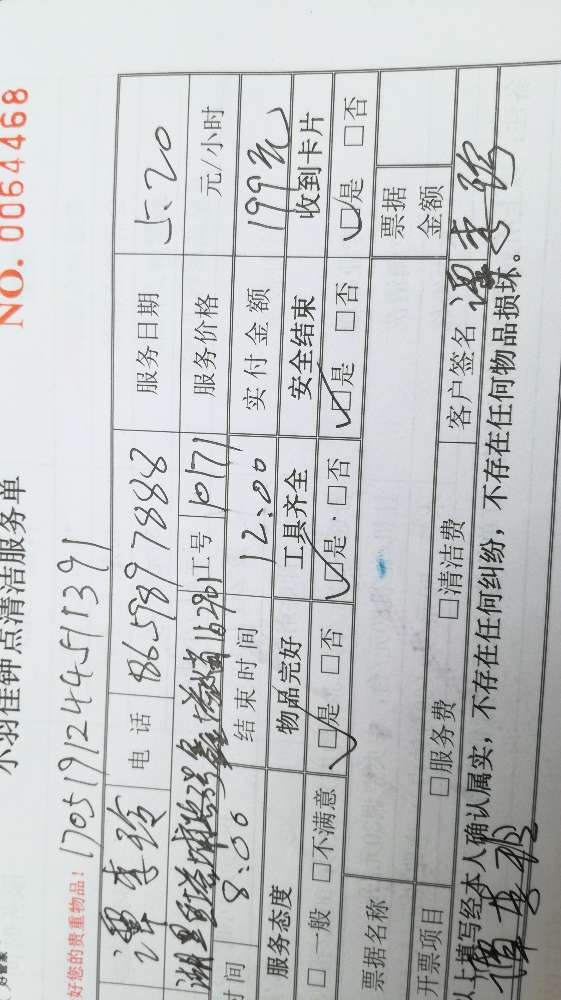 NO. 0064468
小羽佳钟点清洁服务单
好您的贵重物品！ 170519124451391
谭秀玲 电话 8659897888 服务日期 5.20
工号 10171 服务价格 元/小时
时间 8:00 结束时间 12:00 实付金额 199元
服务态度 物品完好 工具齐全 安全结束 收到卡片
□一般 □不满意 ☑是 □否 ☑是 □否 ☑是 □否 ☑是 □否
票据名称 票据金额
开票项目 □服务费 □清洁费 客户签名 谭秀玲
以上填写经本人确认属实，不存在任何纠纷，不存在任何物品损坏。
谭秀玲